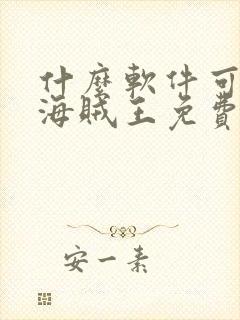 什麼軟件可
海賊王免費
安一素